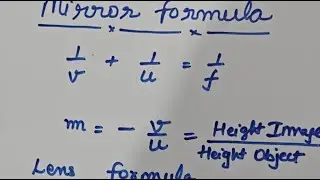 Mirror formula
1/v + 1/u = 1/f
m = - v/u = Height Image/Height Object
Lens formula